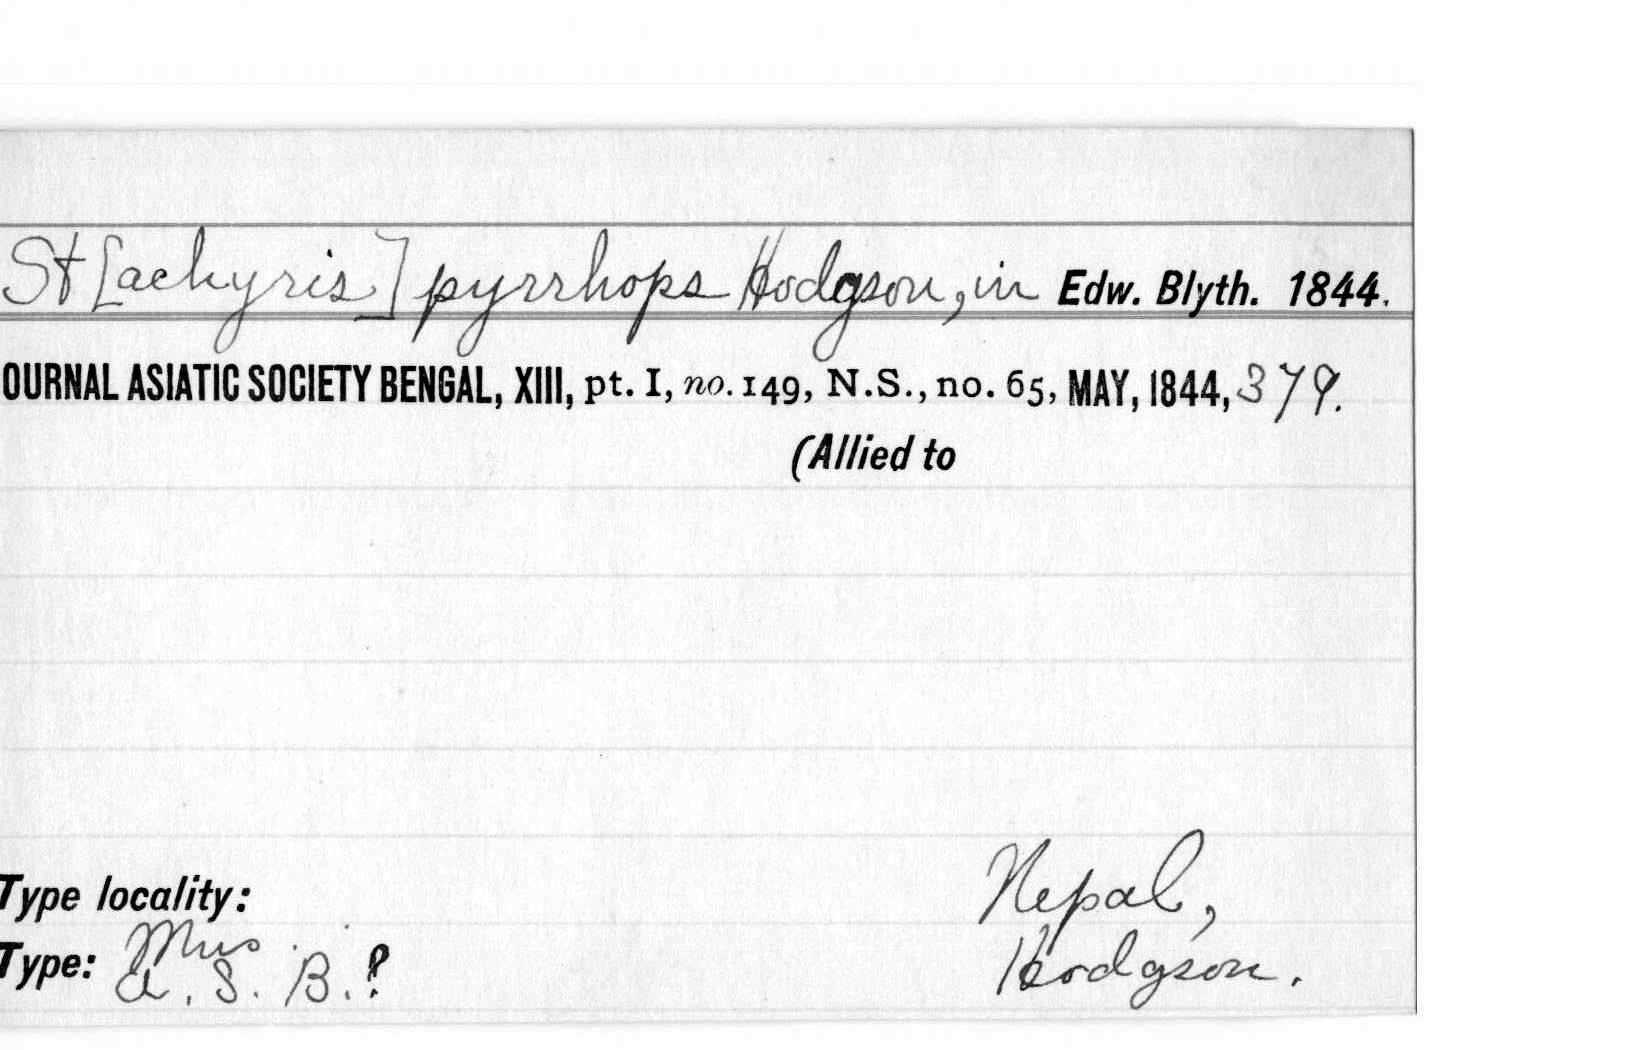 St[achyris] pyrrhops Hodgson, in Edw. Blyth. 1844.
OURNAL ASIATIC SOCIETY BENGAL, XIII, pt. I, no. 149, N.S., no. 65, MAY, 1844, 379.
(Allied to
Type locality: Nepal,
Type: Mus A. S. B. ? Hodgson.